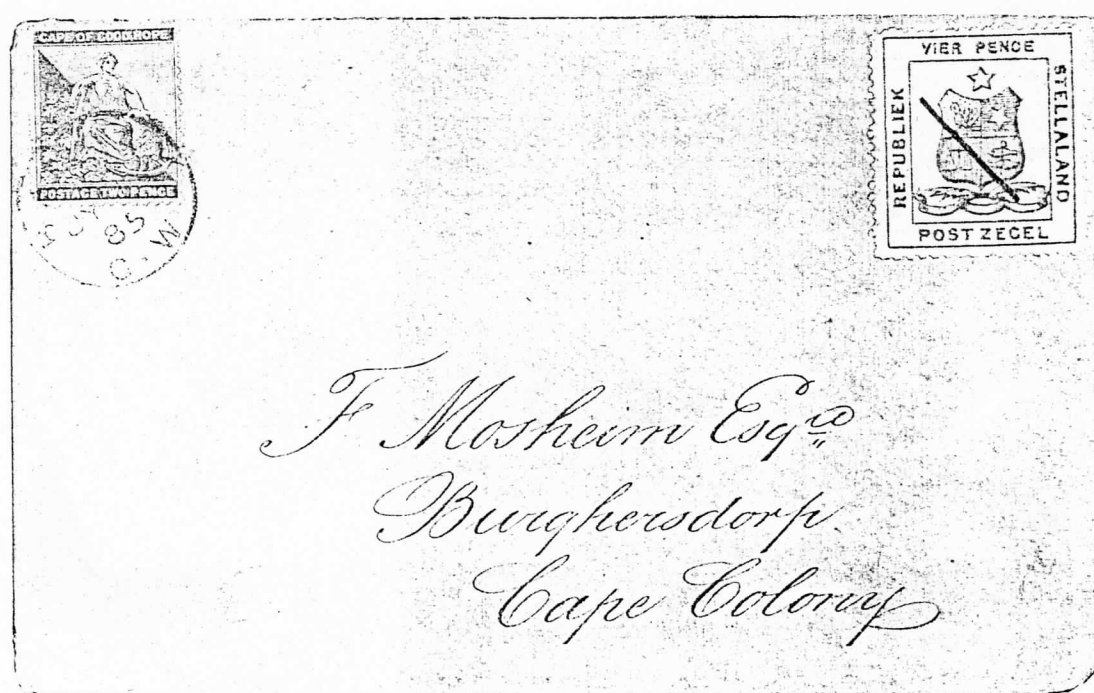 CAPE OF GOOD HOPE
POSTAGE TWO PENCE
85
G.W
VIER PENCE
REPUBLIEK
STELLALAND
POSTZEGEL
F Mosheim Esqre
Burghersdorp.
Cape Colony